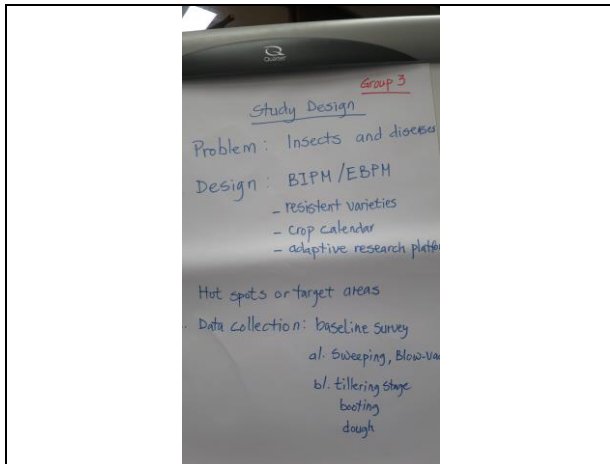 Quartet
Group 3
Study Design
Problem: Insects and diseases
Design: BIPM/EBPM
- resistent varieties
- crop calendar
- adaptive research
Hot spots or target areas
Data collection: baseline survey
a/. Sweeping,
b/. tillering stage
booting
dough